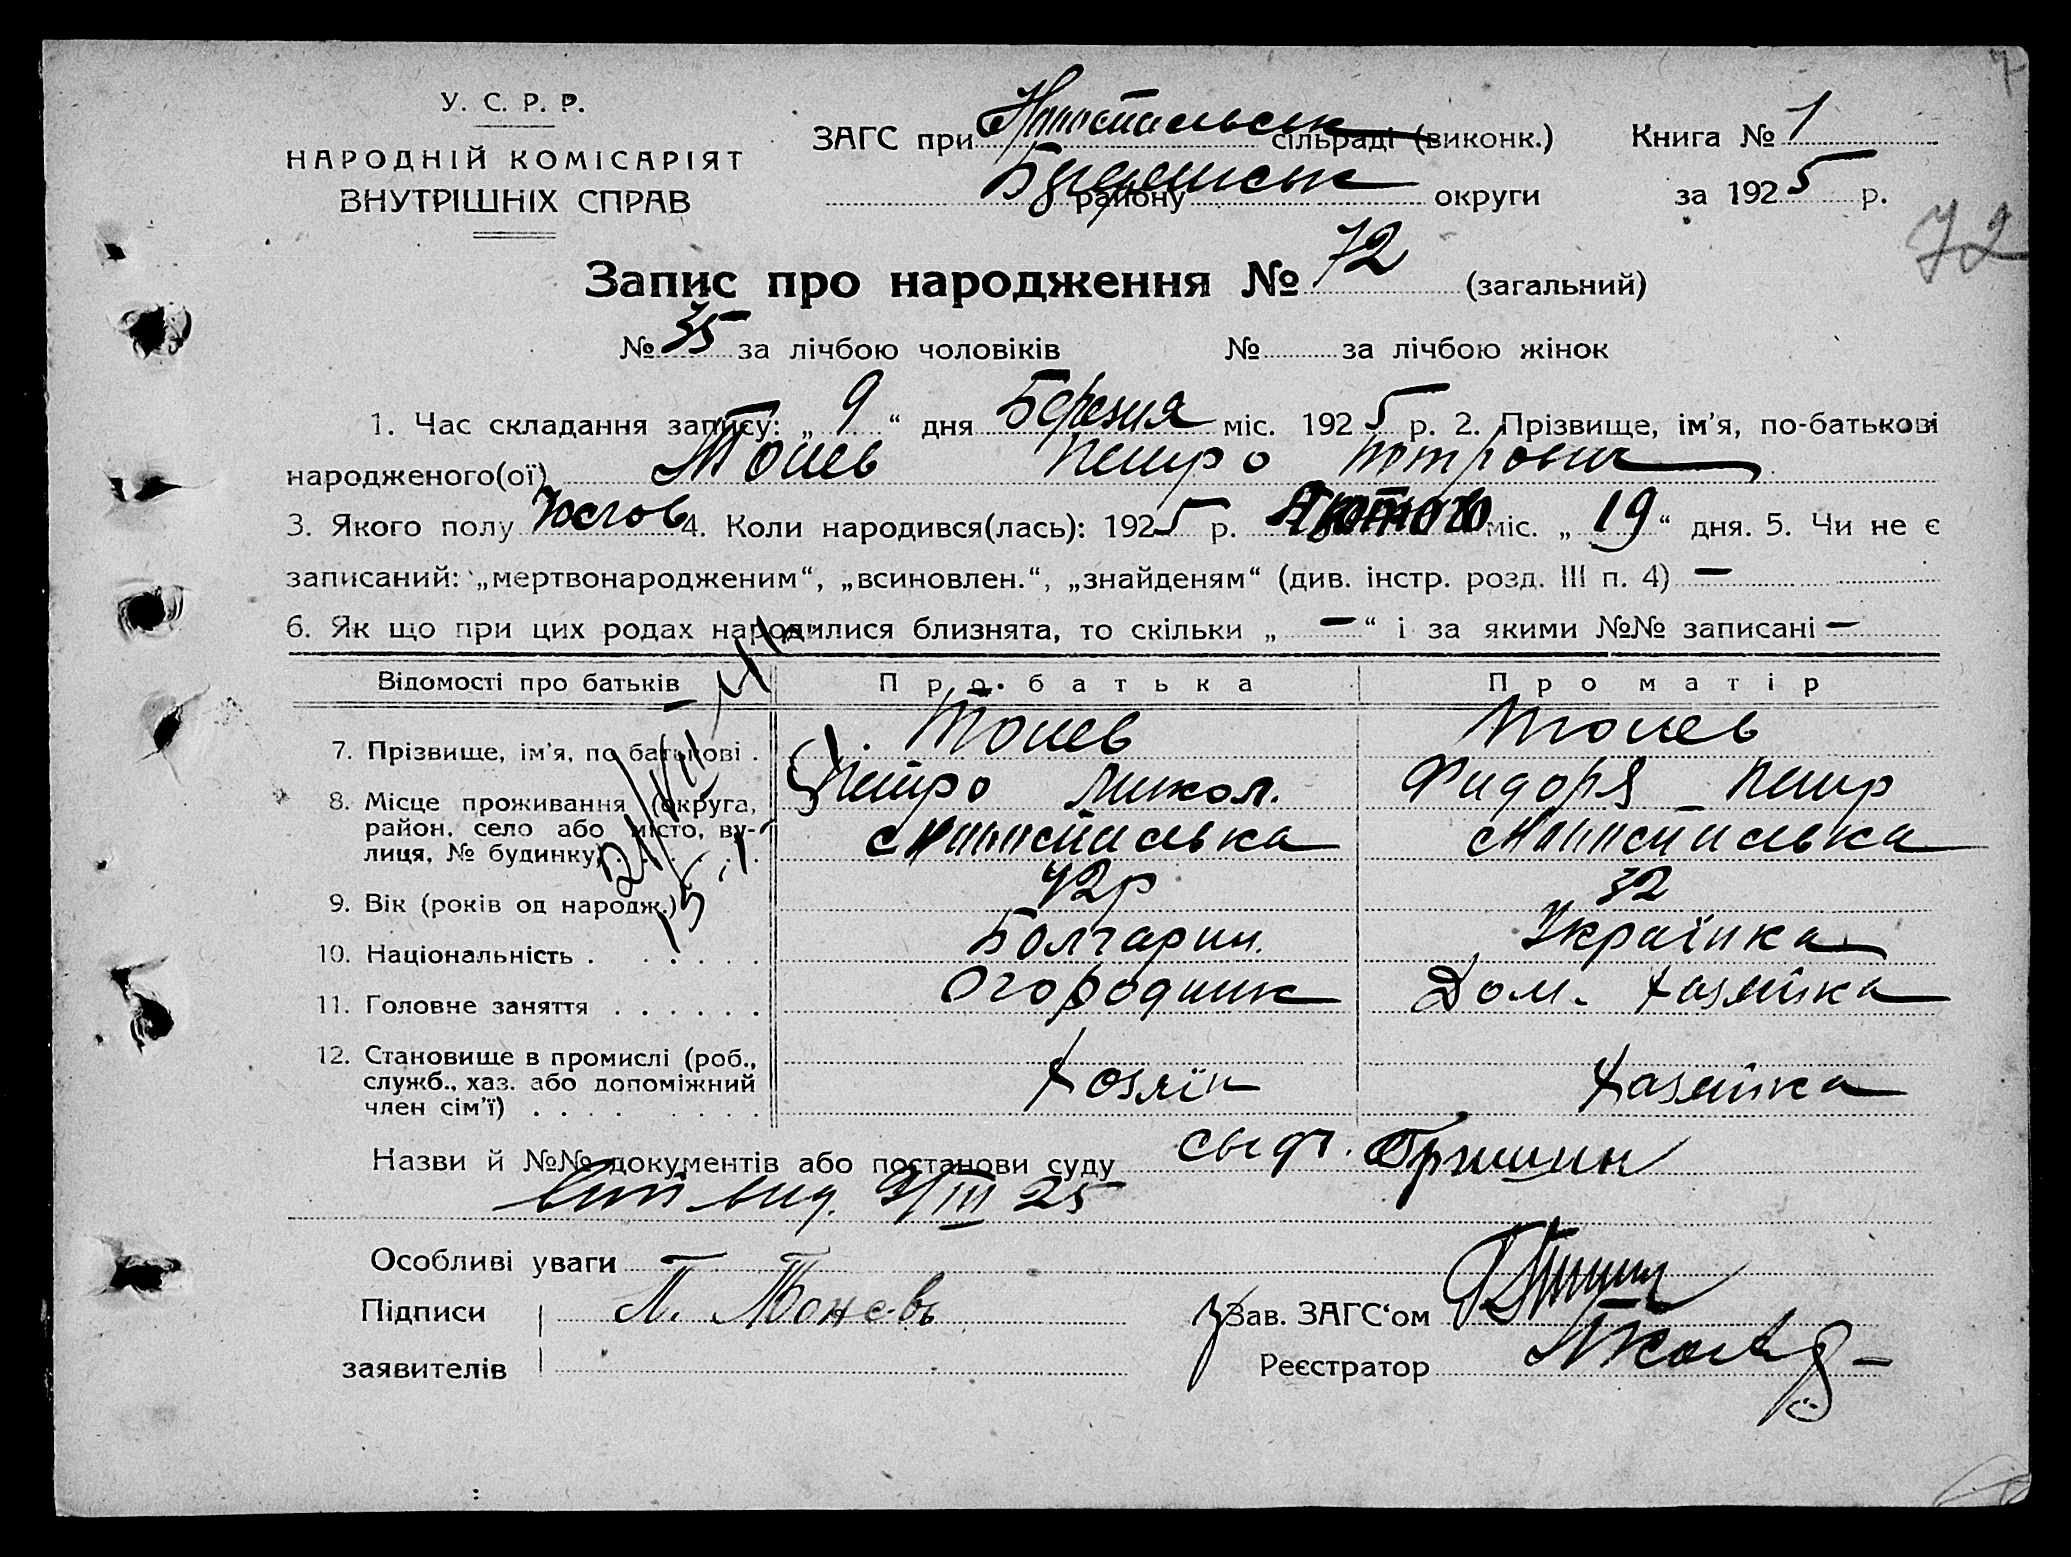 У. С. Р. Р.
НАРОДНІЙ КОМІСАРІЯТ
ВНУТРІШНІХ СПРАВ
ЗАГС при сільраді (виконк.)
району округи
Книга № 1
за 1925 р.
72
Запис про народження № 72 (загальний)
№ 35 за лічбою чоловіків № за лічбою жінок
1. Час складання запису: „ 9 “ дня Березня міс. 1925 р. 2. Прізвище, ім'я, по-батькові
народженого(ої) Тонев Петро Петрович
3. Якого полу 4. Коли народився(лась): 1925 р. Лютого міс. „ 19 “ дня. 5. Чи не є
записаний: „мертвонародженим“, „всиновлен.“, „знайденям“ (див. інстр. розд. III п. 4) —
6. Як що при цих родах народилися близнята, то скільки „ — “ і за якими №№ записані —
Відомості про батьків Про батька Про матір
7. Прізвище, ім'я, по батькові . Тонев Тонев
Петро Микол. Фидоря Петр
8. Місце проживання (округа,
район, село або місто, ву-
лиця, № будинку)
9. Вік (років од народж.) 42р 32
10. Національність . Болгарин. Українка
11. Головне заняття . Огородник Дом. Хазяйка
12. Становище в промислі (роб.,
служб., хаз. або допоміжний
член сім'ї) . Хозяїн Хазяйка
Назви й №№ документів або постанови суду
вид. 9/III 25
Особливі уваги
Підписи П. Тоневъ Зав. ЗАГС‘ом
заявителів Реєстратор